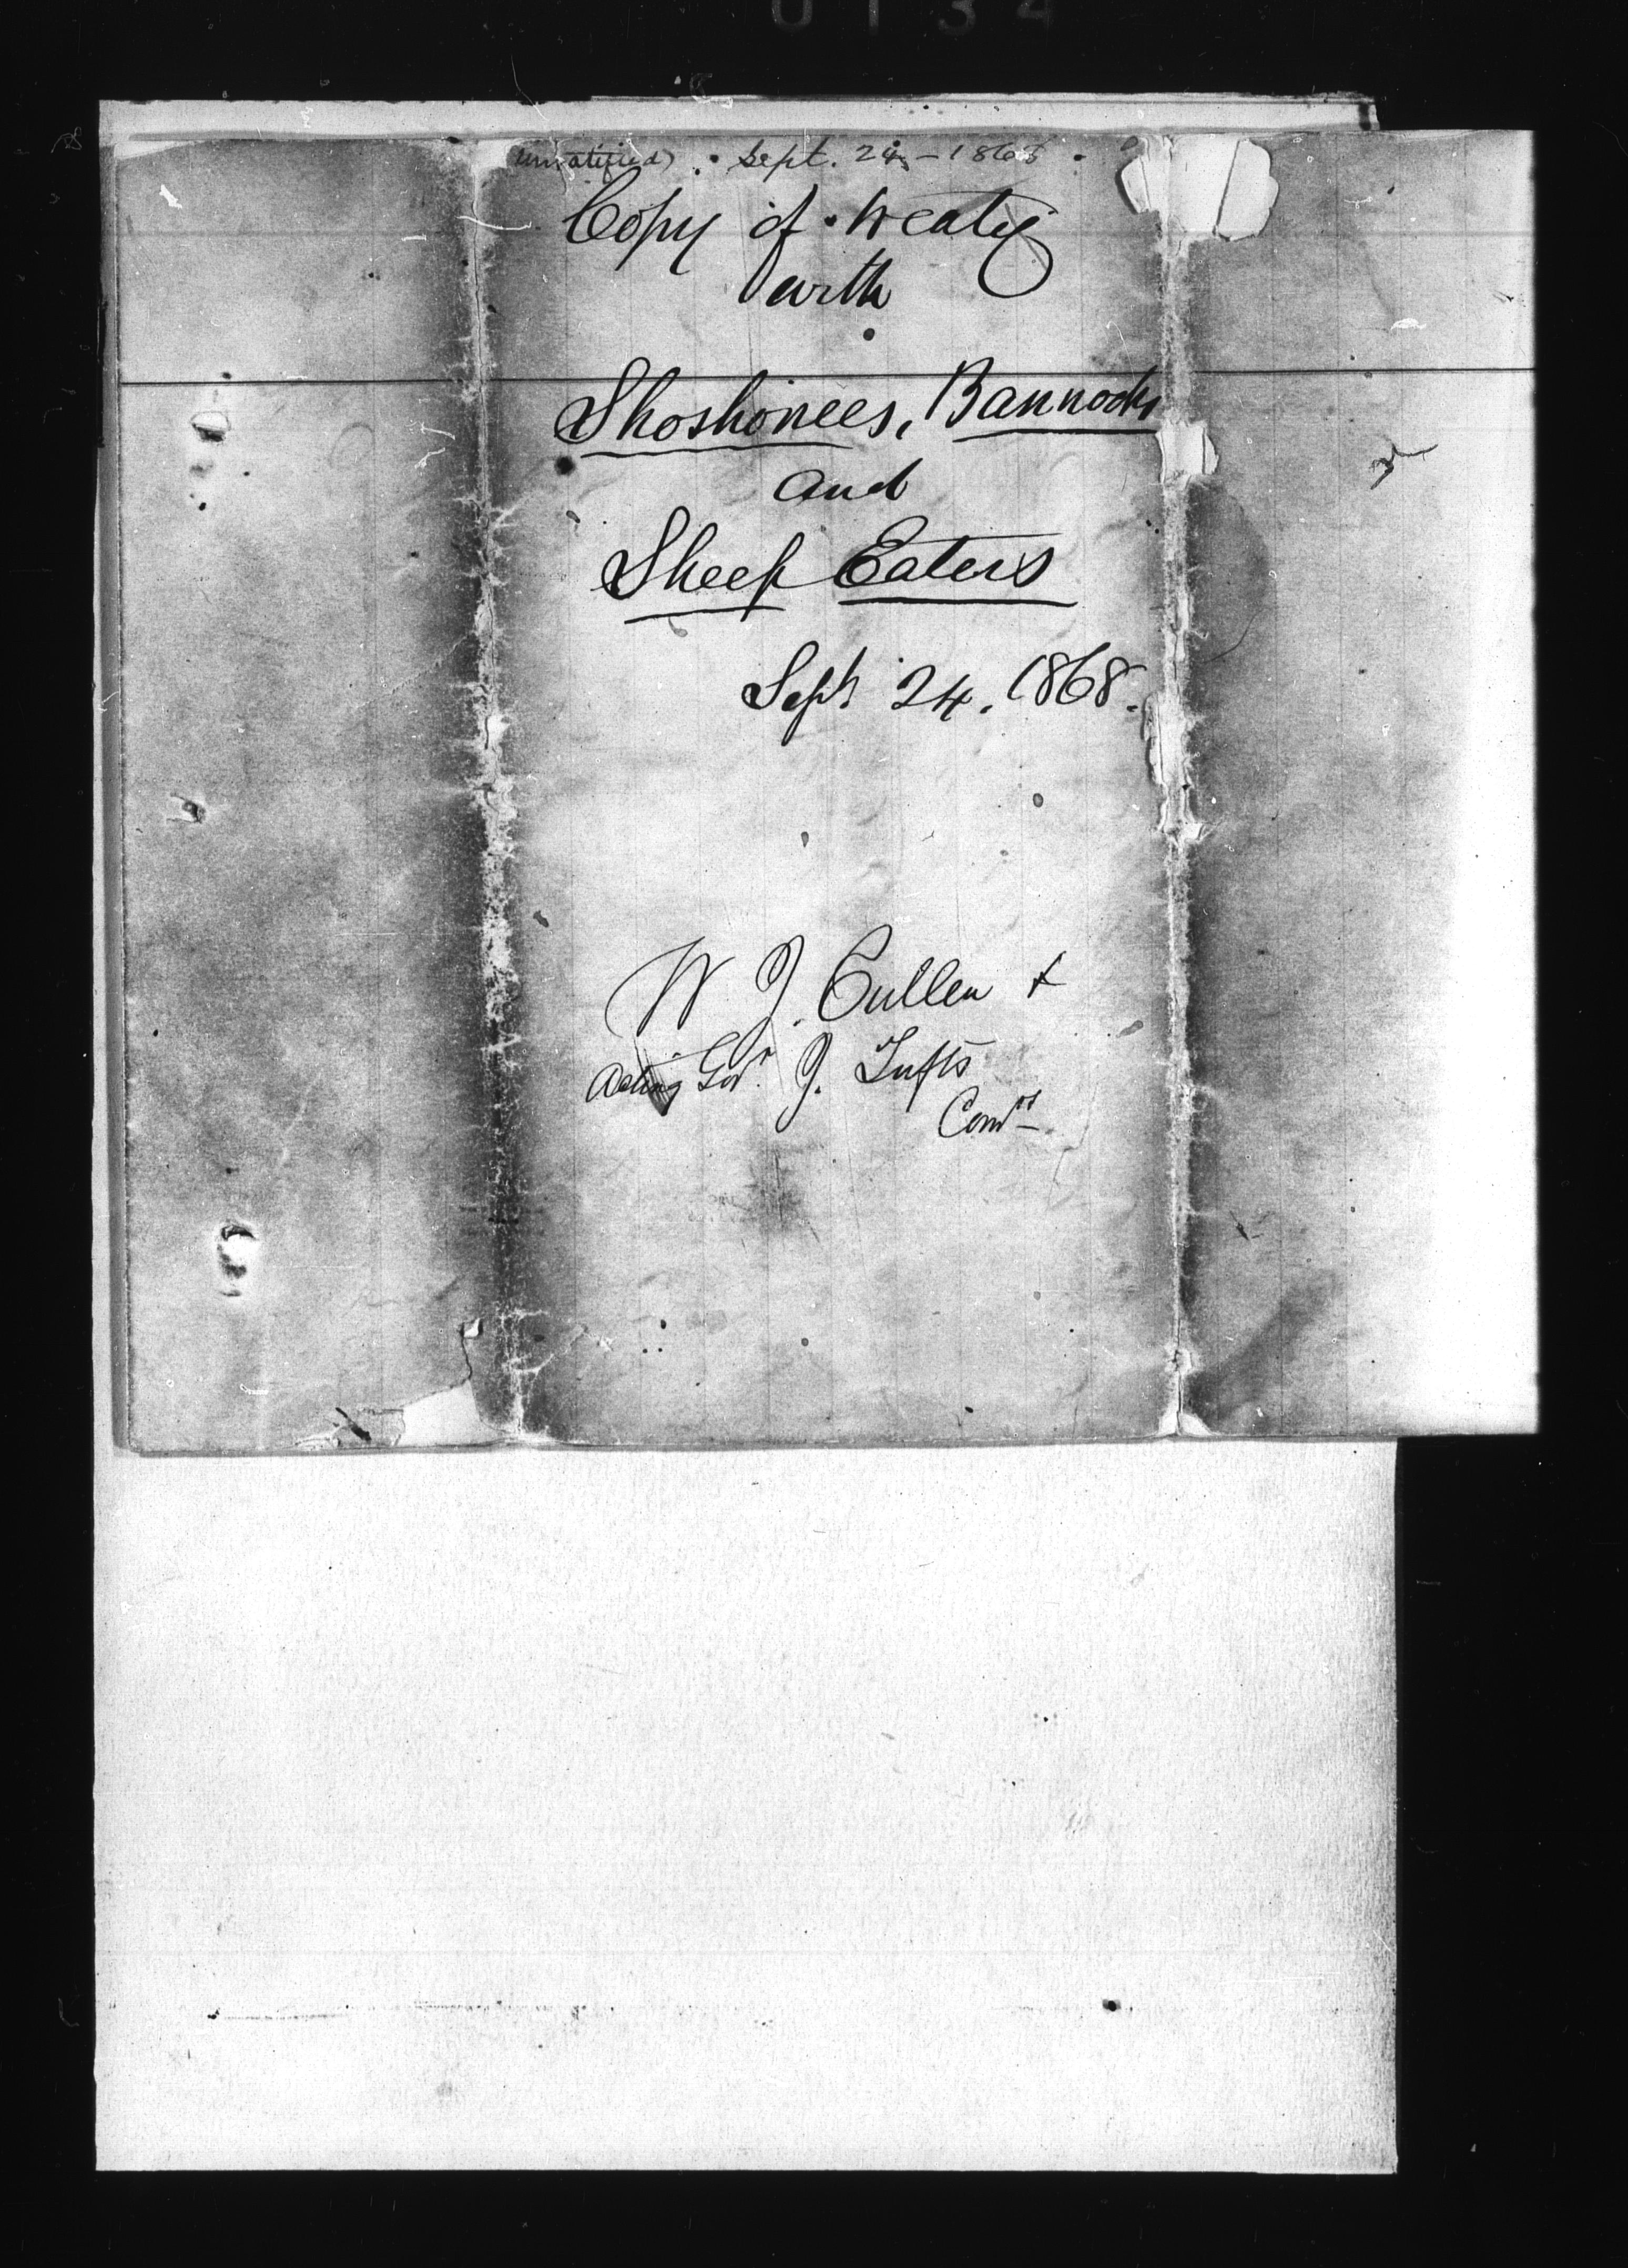 0134
(unratified) Sept. 24 - 1868
Copy of treaty
with
Shoshonees, Bannocks
and
Sheep Eaters
Sept 24. 1868.
W. J. Cullen &
Acting Gov.r J. Tufts
Comrs